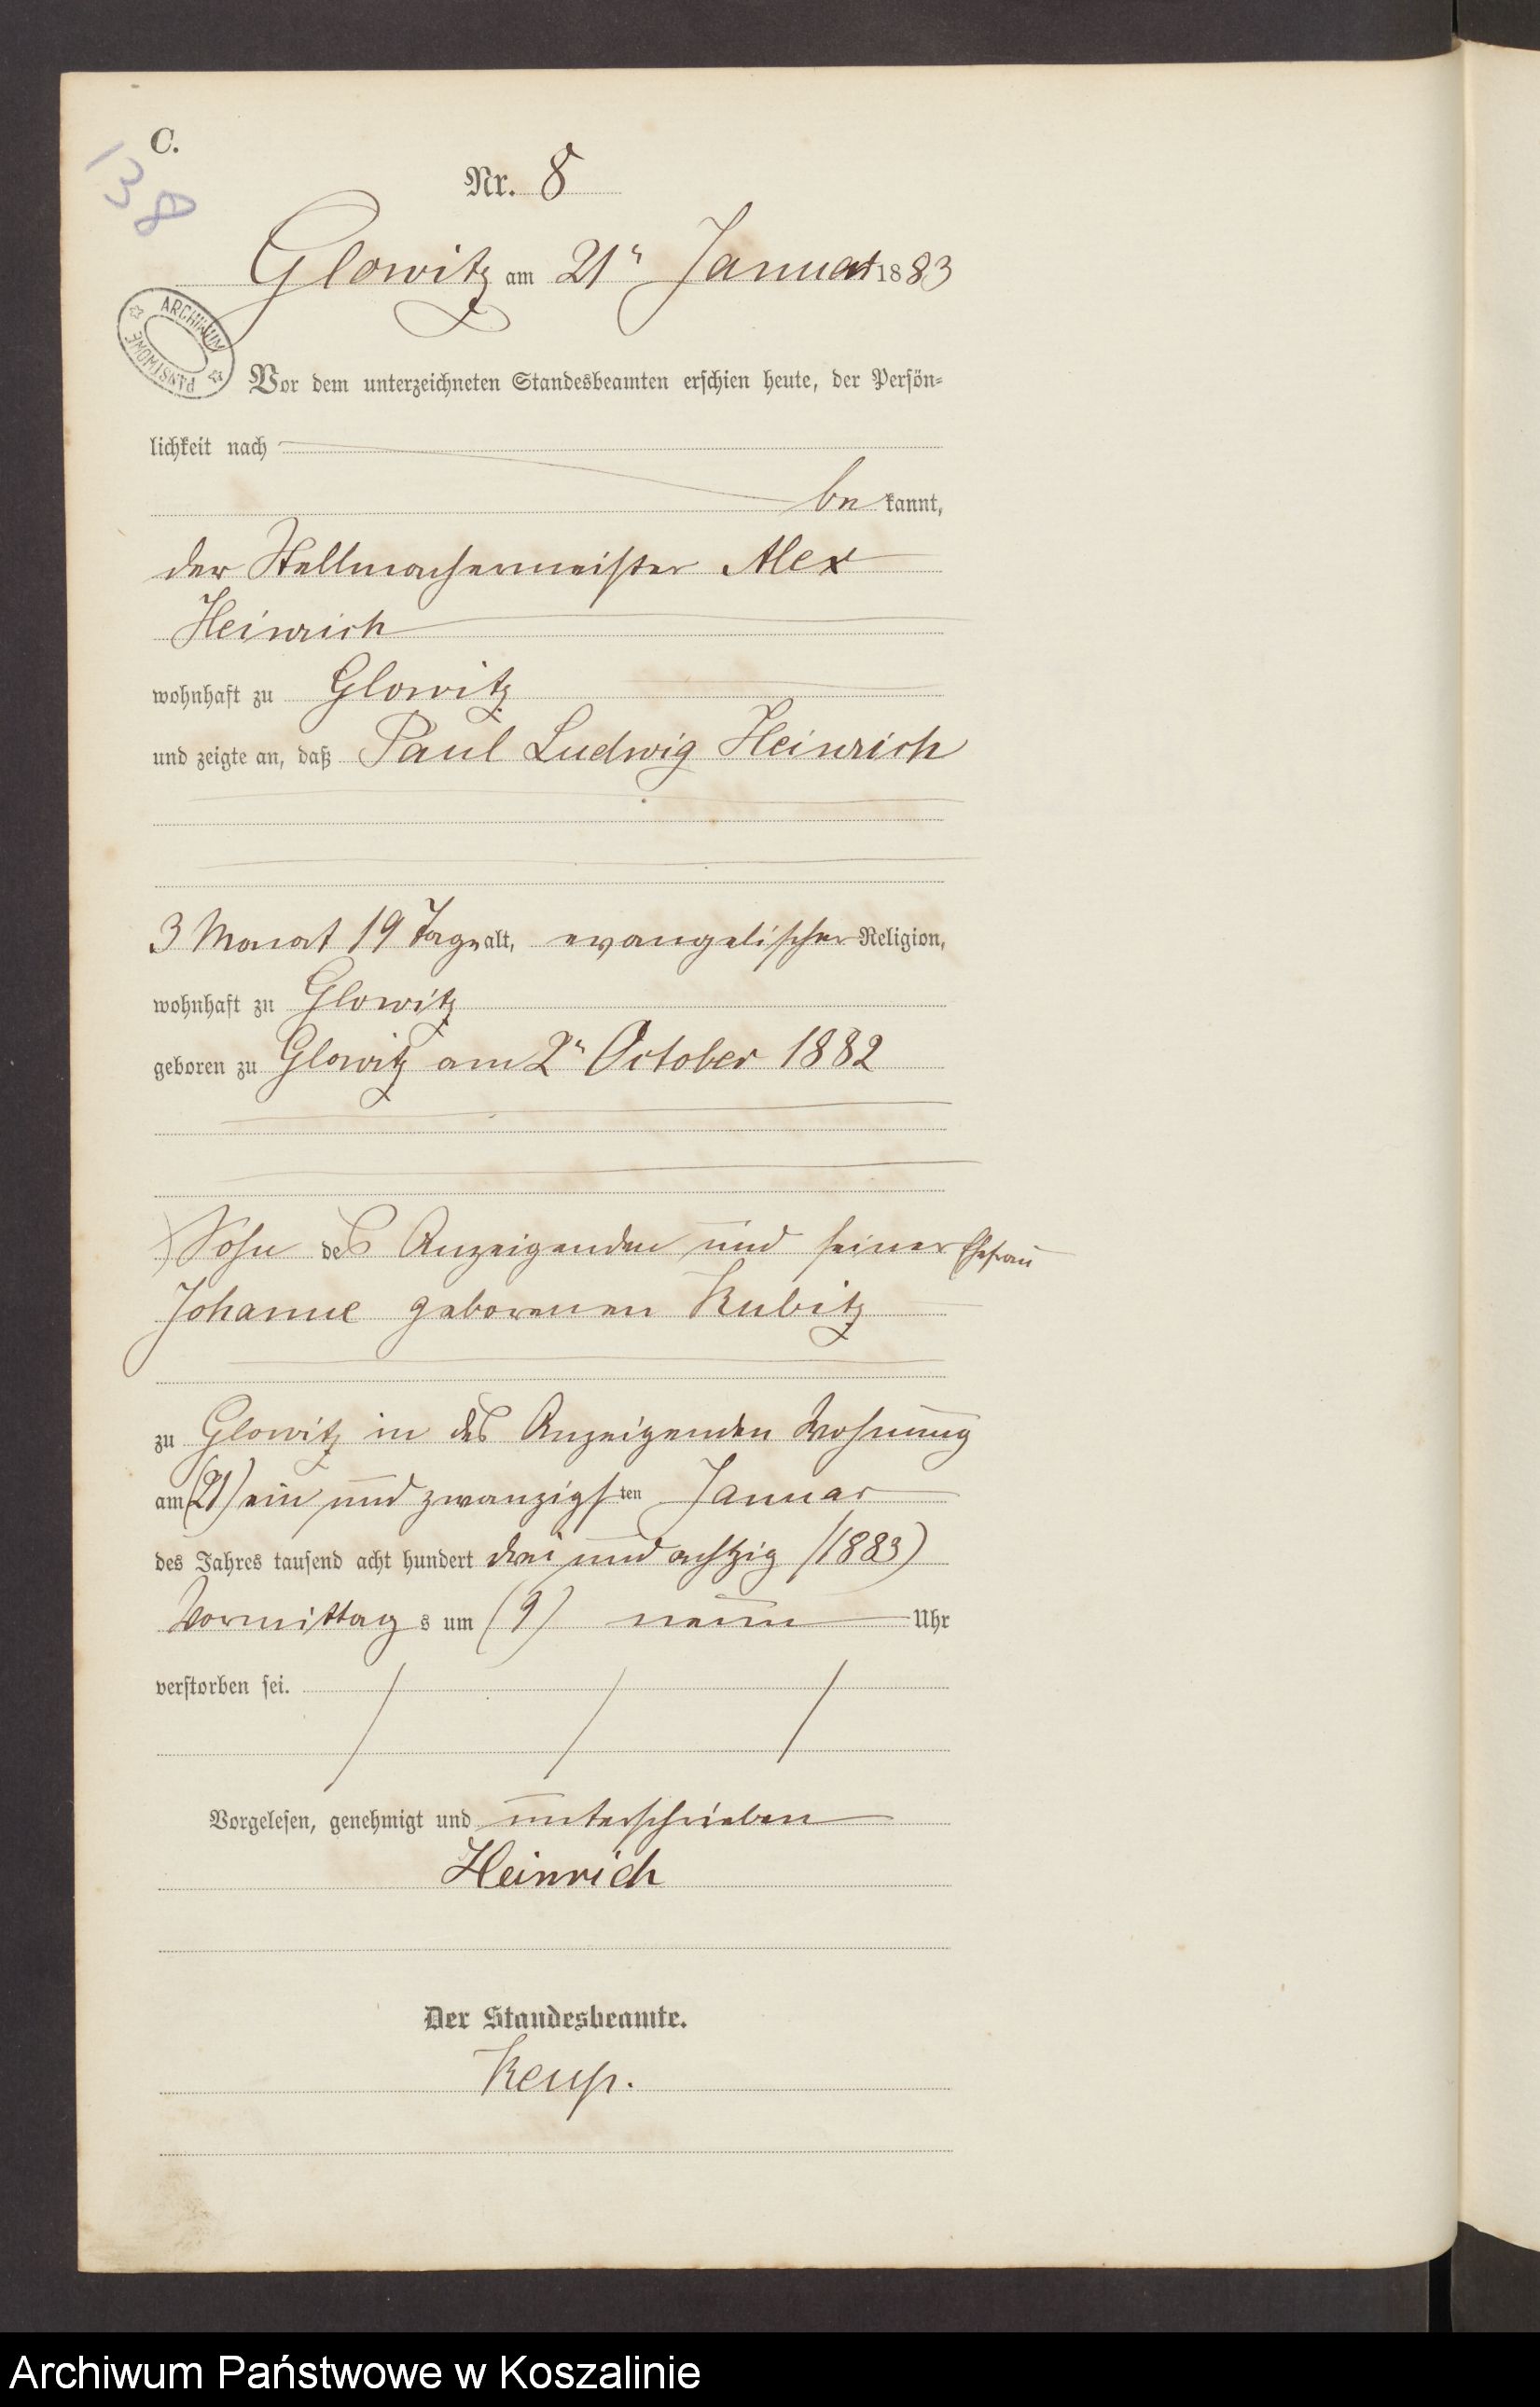 C.
138
Nr. 8
Glowitz am 21ⁿ Januar 1883
ARCHIWUM PAŃSTWOWE
Vor dem unterzeichneten Standesbeamten erschien heute, der Persön-
lichkeit nach
be kannt,
der Stellmachermeister Alex
Heinrich
wohnhaft zu Glowitz
und zeigte an, daß Paul Ludwig Heinrich
3 Monat 19 Tage alt, evangelischer Religion,
wohnhaft zu Glowitz
geboren zu Glowitz am 2ⁿ October 1882
Sohn des Anzeigenden und seiner Ehefrau
Johanne geborenen Kubitz
zu Glowitz in des Anzeigenden Wohnung
am (21) ein und zwanzigsten Januar
des Jahres tausend acht hundert drei und achtzig (1883)
Vormittags um (9) neun Uhr
verstorben sei.
Vorgelesen, genehmigt und unterschrieben
Heinrich
Der Standesbeamte.
Keup.
Archiwum Państwowe w Koszalinie